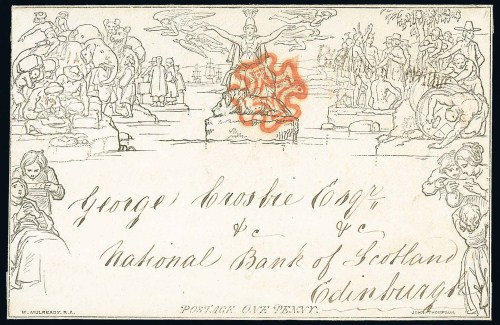 George Crosbie Esqr
&c &c
National Bank of Scotland
Edinburgh
POSTAGE ONE PENNY.
W. MULREADY. R.A.
JOHN THOMPSON